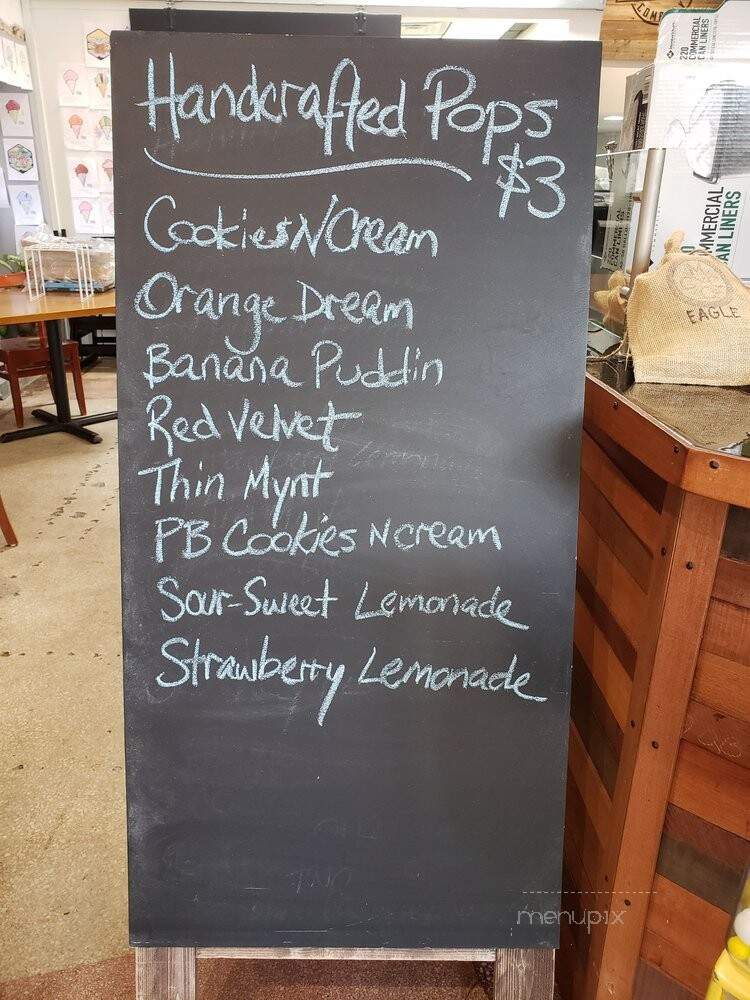 Handcrafted Pops
$3
Cookies N Cream
Orange Dream
Banana Puddin
Red Velvet
Thin Mynt
PB Cookies N cream
Sour-Sweet Lemonade
Strawberry Lemonade
menupix
220
COMMERCIAL
CAN LINERS
EAGLE